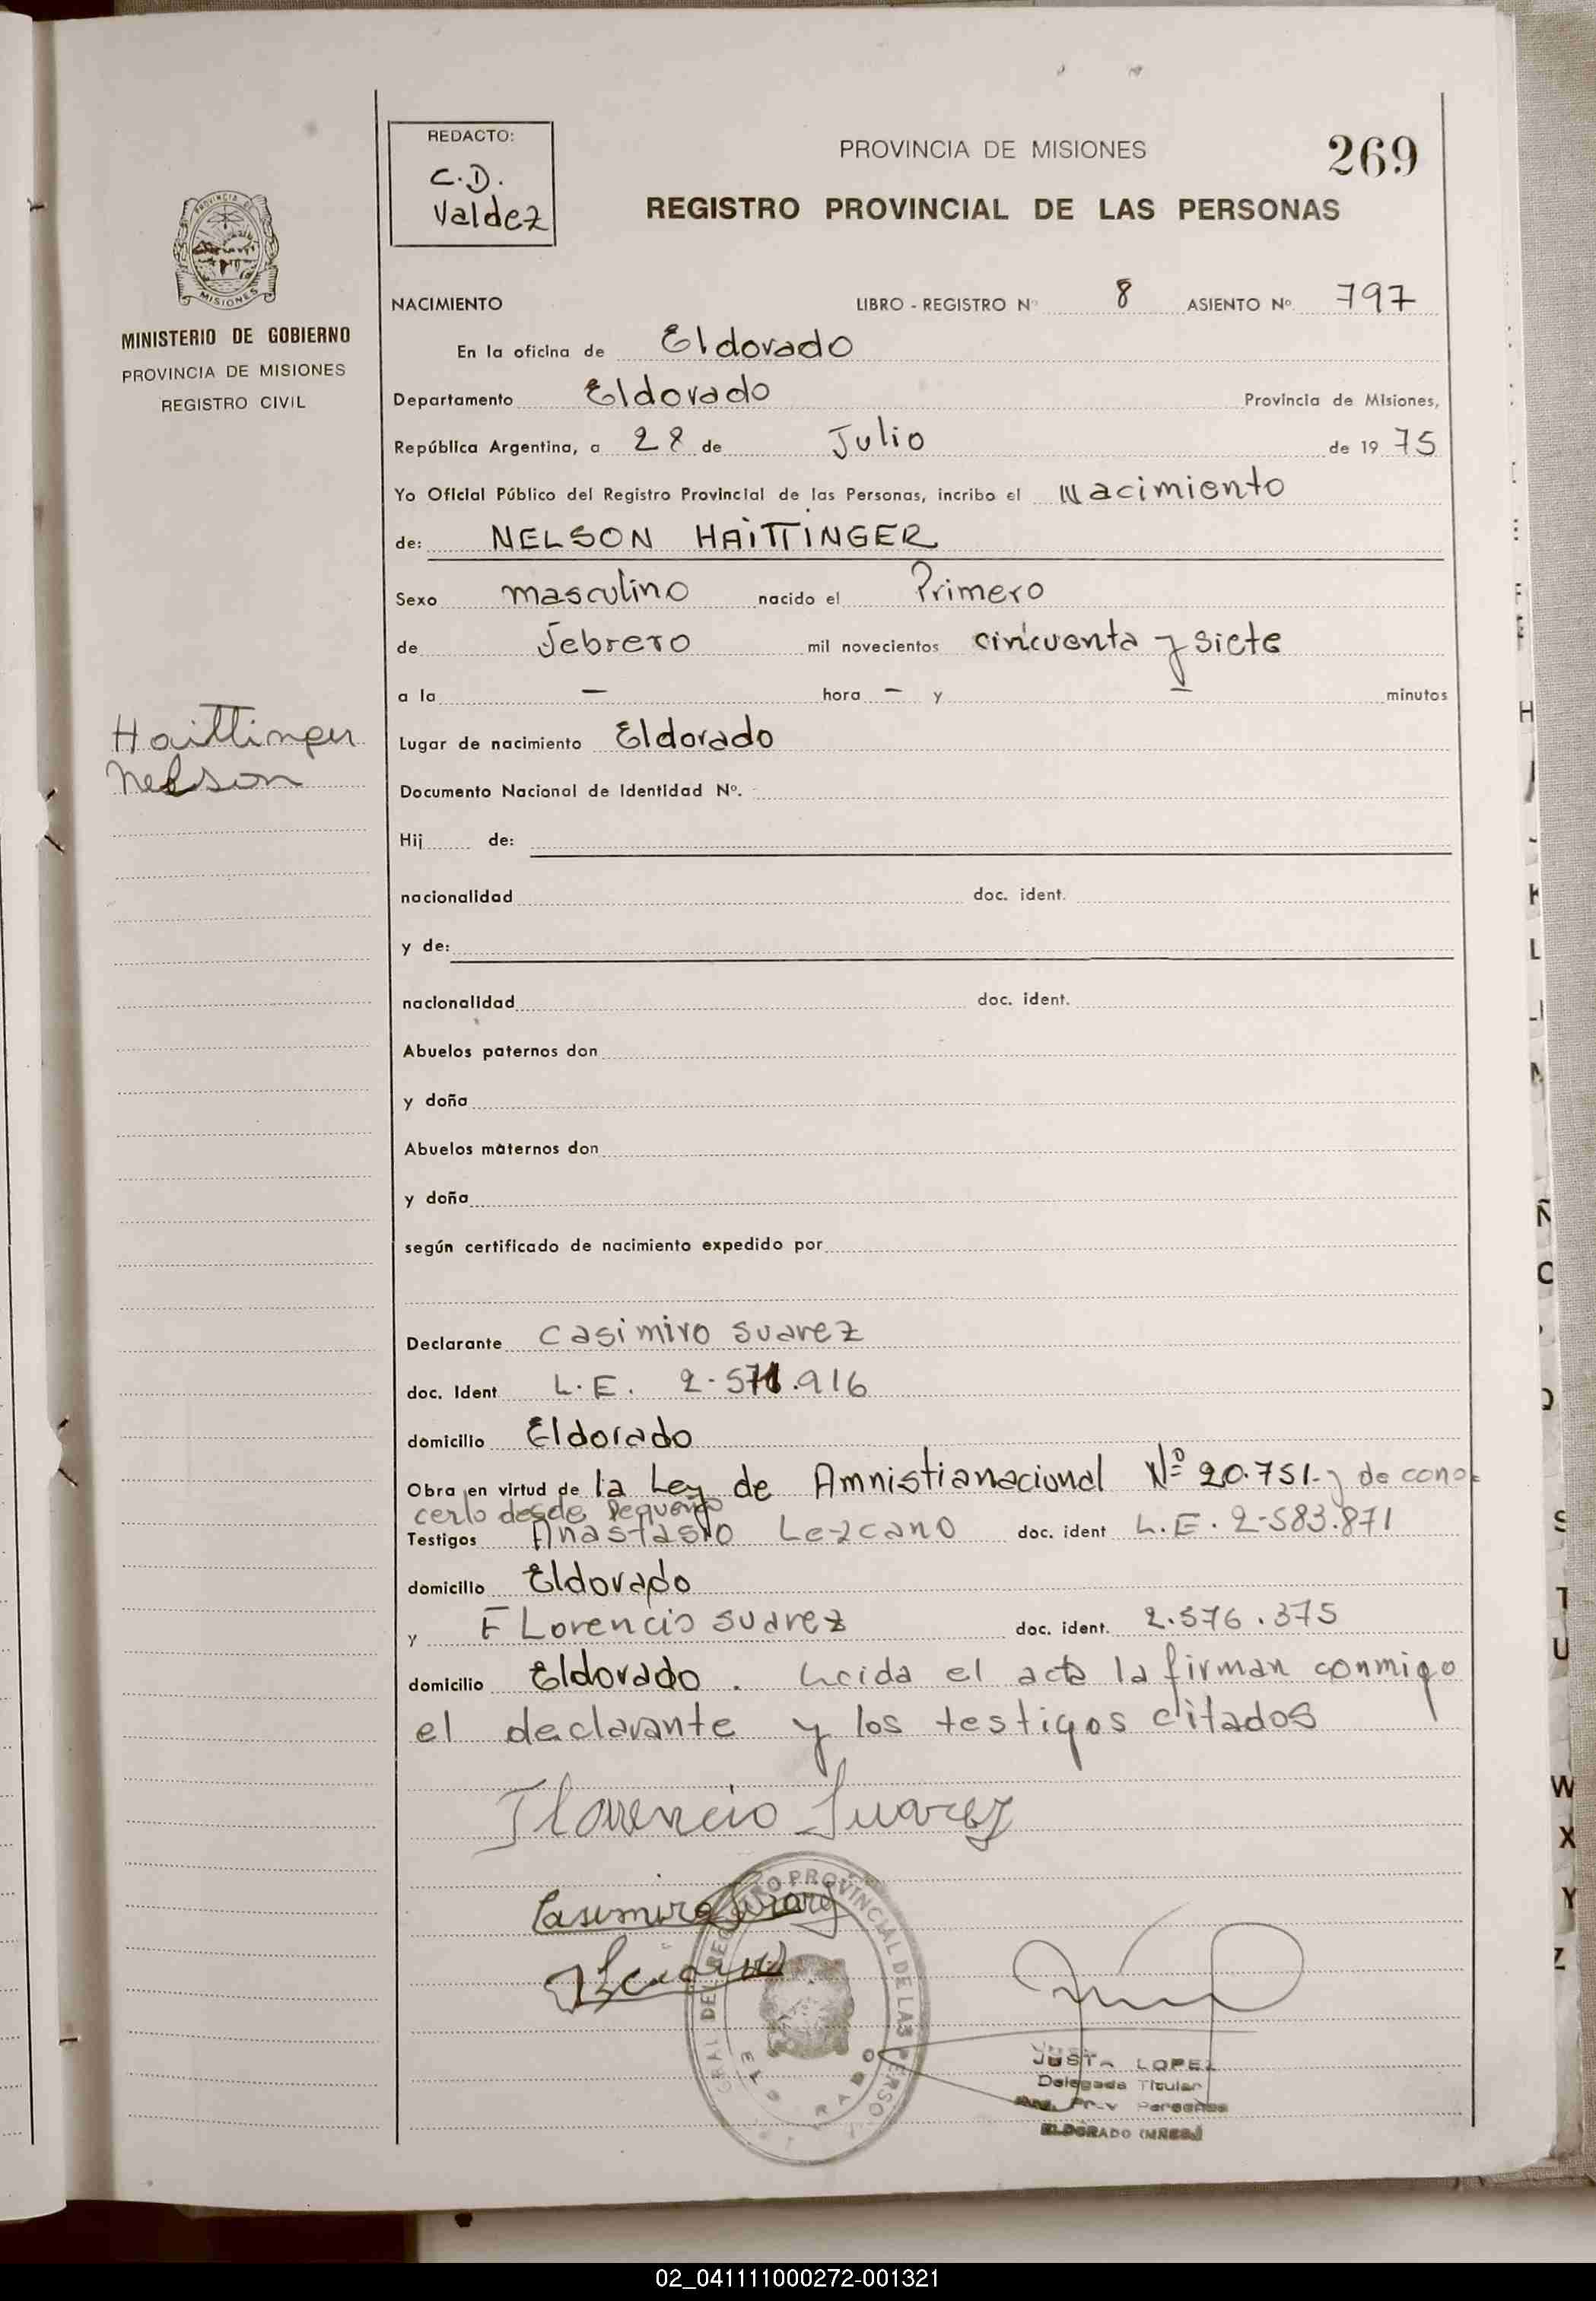 REDACTO:
C.D.
Valdez
PROVINCIA DE MISIONES
269
REGISTRO PROVINCIAL DE LAS PERSONAS
PROVINCIA DE
MISIONES
MINISTERIO DE GOBIERNO
PROVINCIA DE MISIONES
REGISTRO CIVIL
NACIMIENTO LIBRO - REGISTRO Nº 8 ASIENTO Nº 797
En la oficina de Eldorado
Departamento Eldorado Provincia de Misiones,
República Argentina, a 28 de Julio de 19 75
Yo Oficial Público del Registro Provincial de las Personas, incribo el Nacimiento
de: NELSON HAITTINGER
Sexo masculino nacido el Primero
de Febrero mil novecientos cincuenta y siete
a la — hora — y — minutos
Haittinger
Nelson
Lugar de nacimiento Eldorado
Documento Nacional de Identidad Nº.
Hij de:
nacionalidad doc. ident.
y de:
nacionalidad doc. ident.
Abuelos paternos don
y doña
Abuelos maternos don
y doña
según certificado de nacimiento expedido por
Declarante Casimiro Suarez
doc. Ident L.E. 2.571.916
domicilio Eldorado
Obra en virtud de la Ley de Amnistianacional Nº 20.751.- y de cono-
cerlo desde pequeño
Testigos Anastasio Lezcano doc. ident L.E. 2-583.871
domicilio Eldorado
y FLorencio suarez doc. ident. 2.576.375
domicilio Eldorado. Leida el acta la firman conmigo
el declarante y los testigos citados
Florencio Suarez
Casimiro Suarez
REGISTRO PROVINCIAL DE LAS PERSO
JUSTA LOPEZ
Delegada Titular
Personas
ELDORADO (MNES.)
H
K
L
M
Ñ
O
S
T
U
W
X
Y
Z
02_041111000272-001321